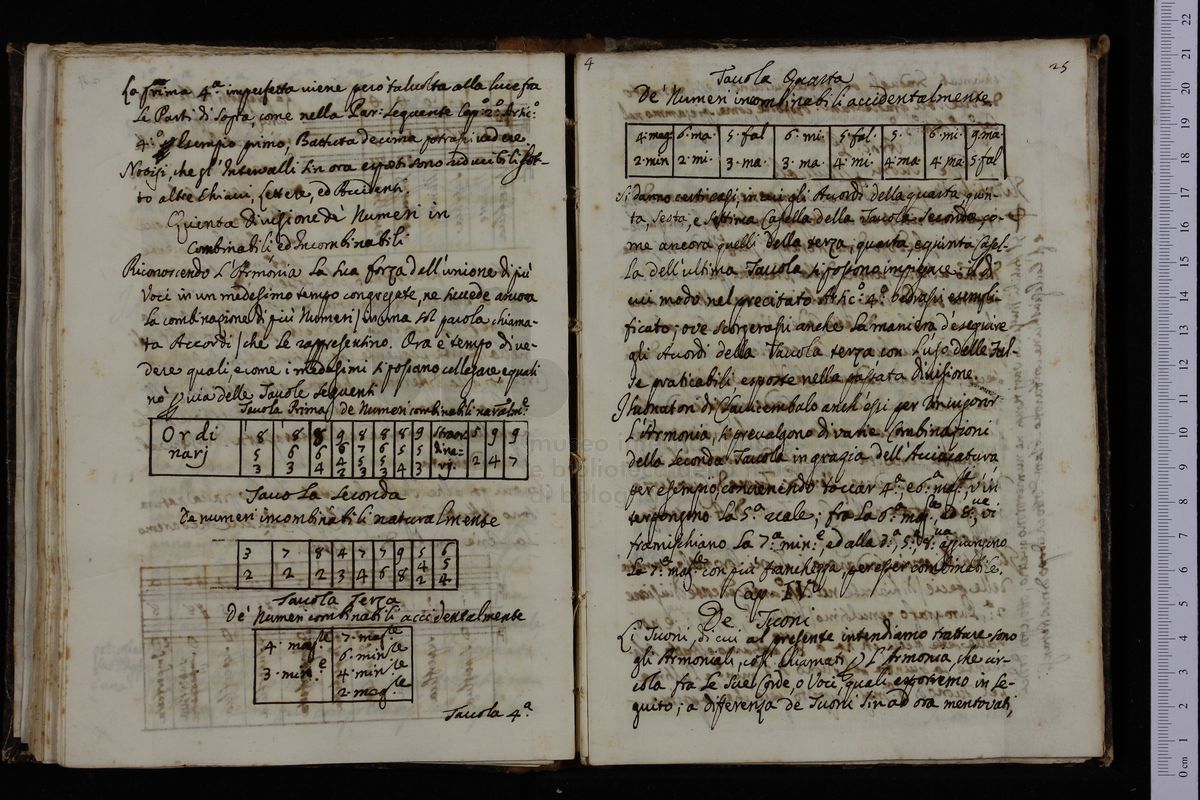 La prima 4.ª imperfetta viene però talvolta alla luce fra
le Parti di sopra, come nella Par: seguente Cap.º 2.º Artic:º
4.º esempio primo, Battuta decima potrasi vedere.
Notisi, che gl'Intervalli sin ora esposti sono riducibili sot-
to altre Chiavi, Lettere, ed Accidenti.
Quenta divisione de' Numeri in
Combinabili ed Incombinabili
Riconoscendo l'Armonia la sua forza dall'unione di più
Voci in un medesimo tempo congregate, ne succede ancora
la combinazione di più Numeri / in una sol parola chiama-
ta Accordi / che le rappresentino. Ora è tempo di ve-
dere quali, e come i medesimi si possano collegare, e quali
nò p via delle Tavole seguenti
Tavola Prima de Numeri combinabili natᵉ
Ordi
narj
8 5 3
8 6 3
8 6 4
9 6 4 3
8 7 5 3
8 6 5 3
8 5 4
9 5 3
straor
dina=
rj.
5 2
9 4
9 7
Tavola Seconda
De numeri incombinabili naturalmente
3 7 8 4 7 7 9 5 6
4 5
2 2 2 3 4 6 8 2 4
Tavola Terza
De' Numeri combinabili accidentalmente
4. mag.le 7. mag.le
6. min.le
3. min.e 4. min.le
2. mag.le
Tavola 4.ª
4
25
Tavola Quarta
De' Numeri incombinabili accidentalmente
4. mag 6. ma. 5. fal 6. mi. 5. fal. 5. 6. mi. 9. ma.
2. min 2. mi. 3. ma. 3. ma. 4. mi. 4. ma. 4. ma. 5. fal
Si danno certi casi, in cui gli Accordi della quarta, quin-
ta, sesta, e settima Casella della Tavola Seconda, co-
me ancora quelli della terza, quarta, e quinta Casel-
la dell'ultima Tavola si possono impiegare; il di
cui modo nel precitato Artic:º 4.º vedrassi esempli-
ficato; ove scorgerassi anche la maniera d'eseguire
gli Accordi della Tavola terza con l'uso delle Fal-
se praticabili esposte nella passata divisione.
I suonatori di Clavicembalo anch'essi per invigorir
l'Armonia, si prevalgono di varie Combinazioni
della seconda Tavola in grazia dell'Acciacatura
per esempio, convenendo toccar 4.ª e 6.ª mag.le, v'in
tergongono la 5.ª reale; fra la 6.ª mag.e, ed 8.ve, vi
framischiano la 7.ª min.e, ed alla 3.ª, 5.ª, 8.va
la 7.ª mag.e con più franchezza, per esser combinabile.
Cap. IV.º
De' Tuoni
Li Tuoni, di cui al presente intendiamo trattare, sono
gli Armoniali, così chiamati p L'Armonia, che cir-
cola fra le sue Corde, o Voci, quali esporremo in se-
guito; a differenza de Tuoni sin ad ora mentovati,
museo
e biblio
di bolog
22
21
20
19
18
17
16
15
14
13
12
11
10
9
8
7
6
5
4
3
2
1
0 cm